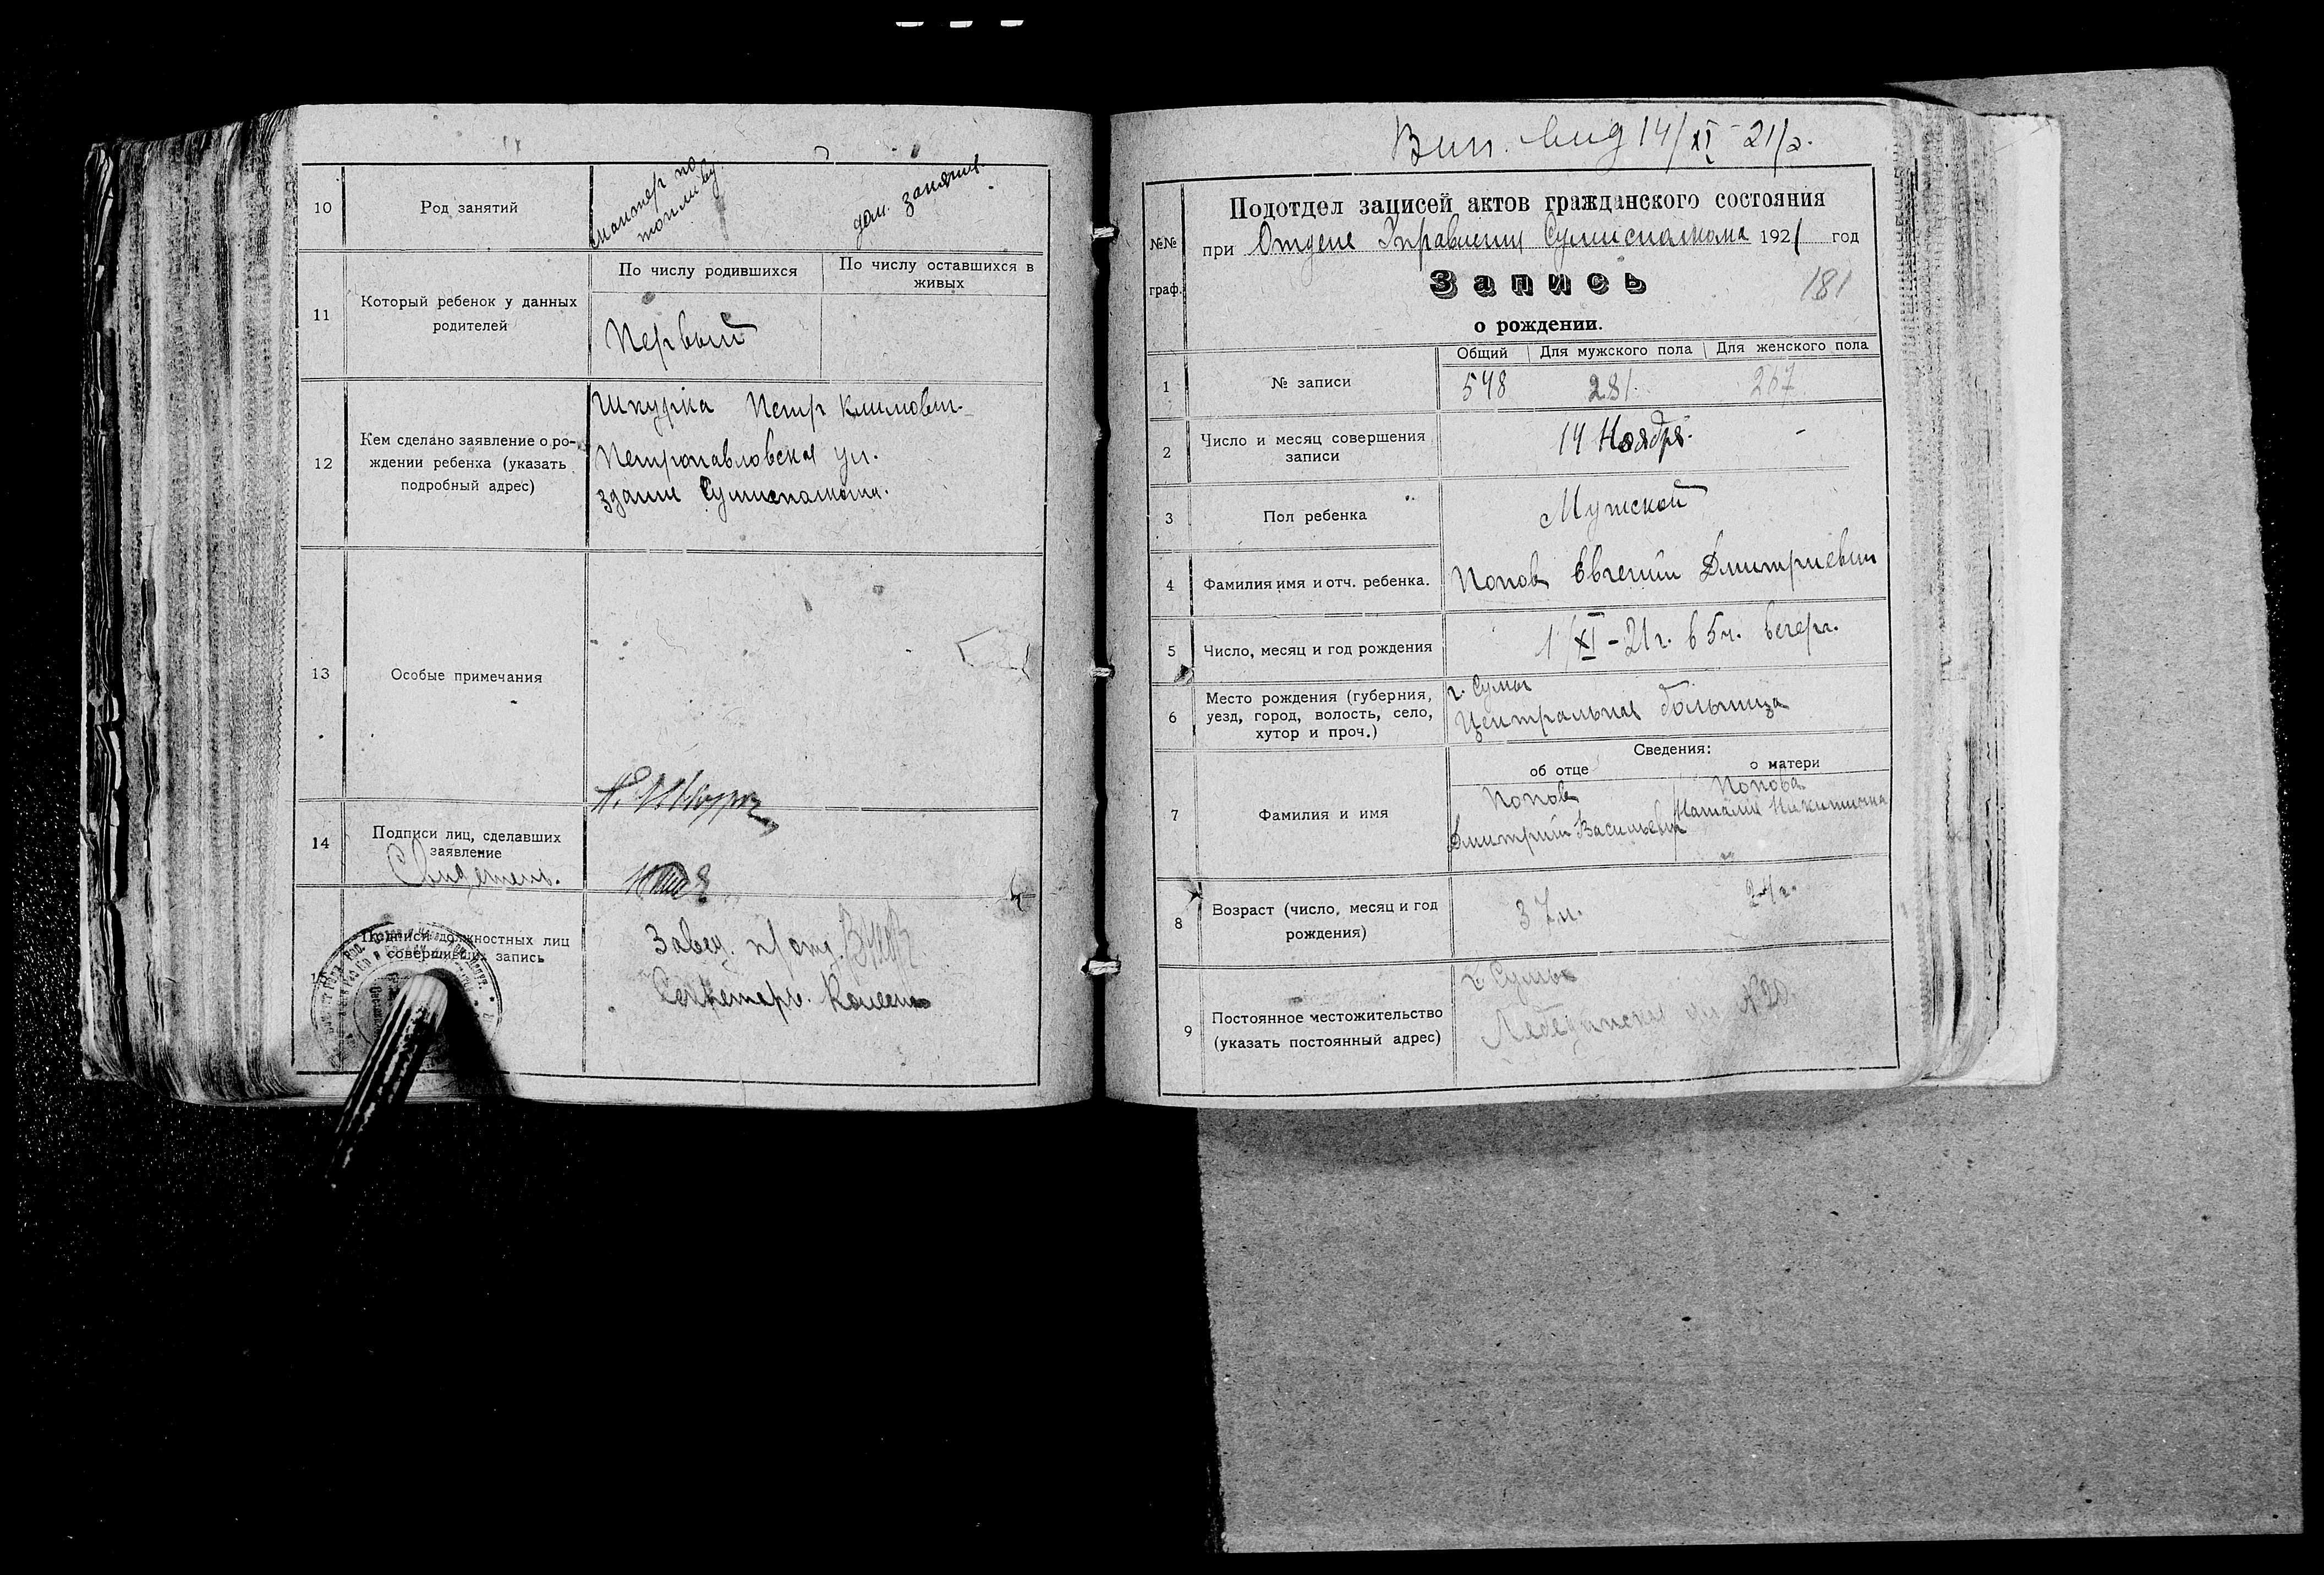 10
Род занятий
монтер по
топливу
дом. занятия
11
Который ребенок у данных
родителей
По числу родившихся
По числу оставшихся в
живых
Первый
12
Кем сделано заявление о ро-
ждении ребенка (указать
подробный адрес)
Шкурка Петр Климович
Петропавловская ул.
здание Сумисполкома.
13
Особые примечания
14
Подписи лиц, сделавших
заявление
Свидетель.
Подписи должностных лиц
совершивших запись
Завед. п/отд.
Секретарь.
Вып. вид 14/XI-21 г.
№№
граф.
Подотдел записей актов гражданского состояния
при Отделе Управления Сумисполкома 1921 год
Запись
181
о рождении.
1
№ записи
Общий
Для мужского пола
Для женского пола
548
281
267
2
Число и месяц совершения
записи
14 Ноября
3
Пол ребенка
Мужской
4
Фамилия имя и отч. ребенка.
Попов Евгений Дмитриевич
5
Число, месяц и год рождения
1/XI-21 г. в 5 ч. вечера.
6
Место рождения (губерния,
уезд, город, волость, село,
хутор и проч.)
г. Сумы
Центральная больница
Сведения:
об отце
о матери
7
Фамилия и имя
Попов
Дмитрий Васильевич
Попова
Наталия Никитична
8
Возраст (число, месяц и год
рождения)
37 л.
24 г.
9
Постоянное местожительство
(указать постоянный адрес)
г. Сумы
Лебединская ул № 20.